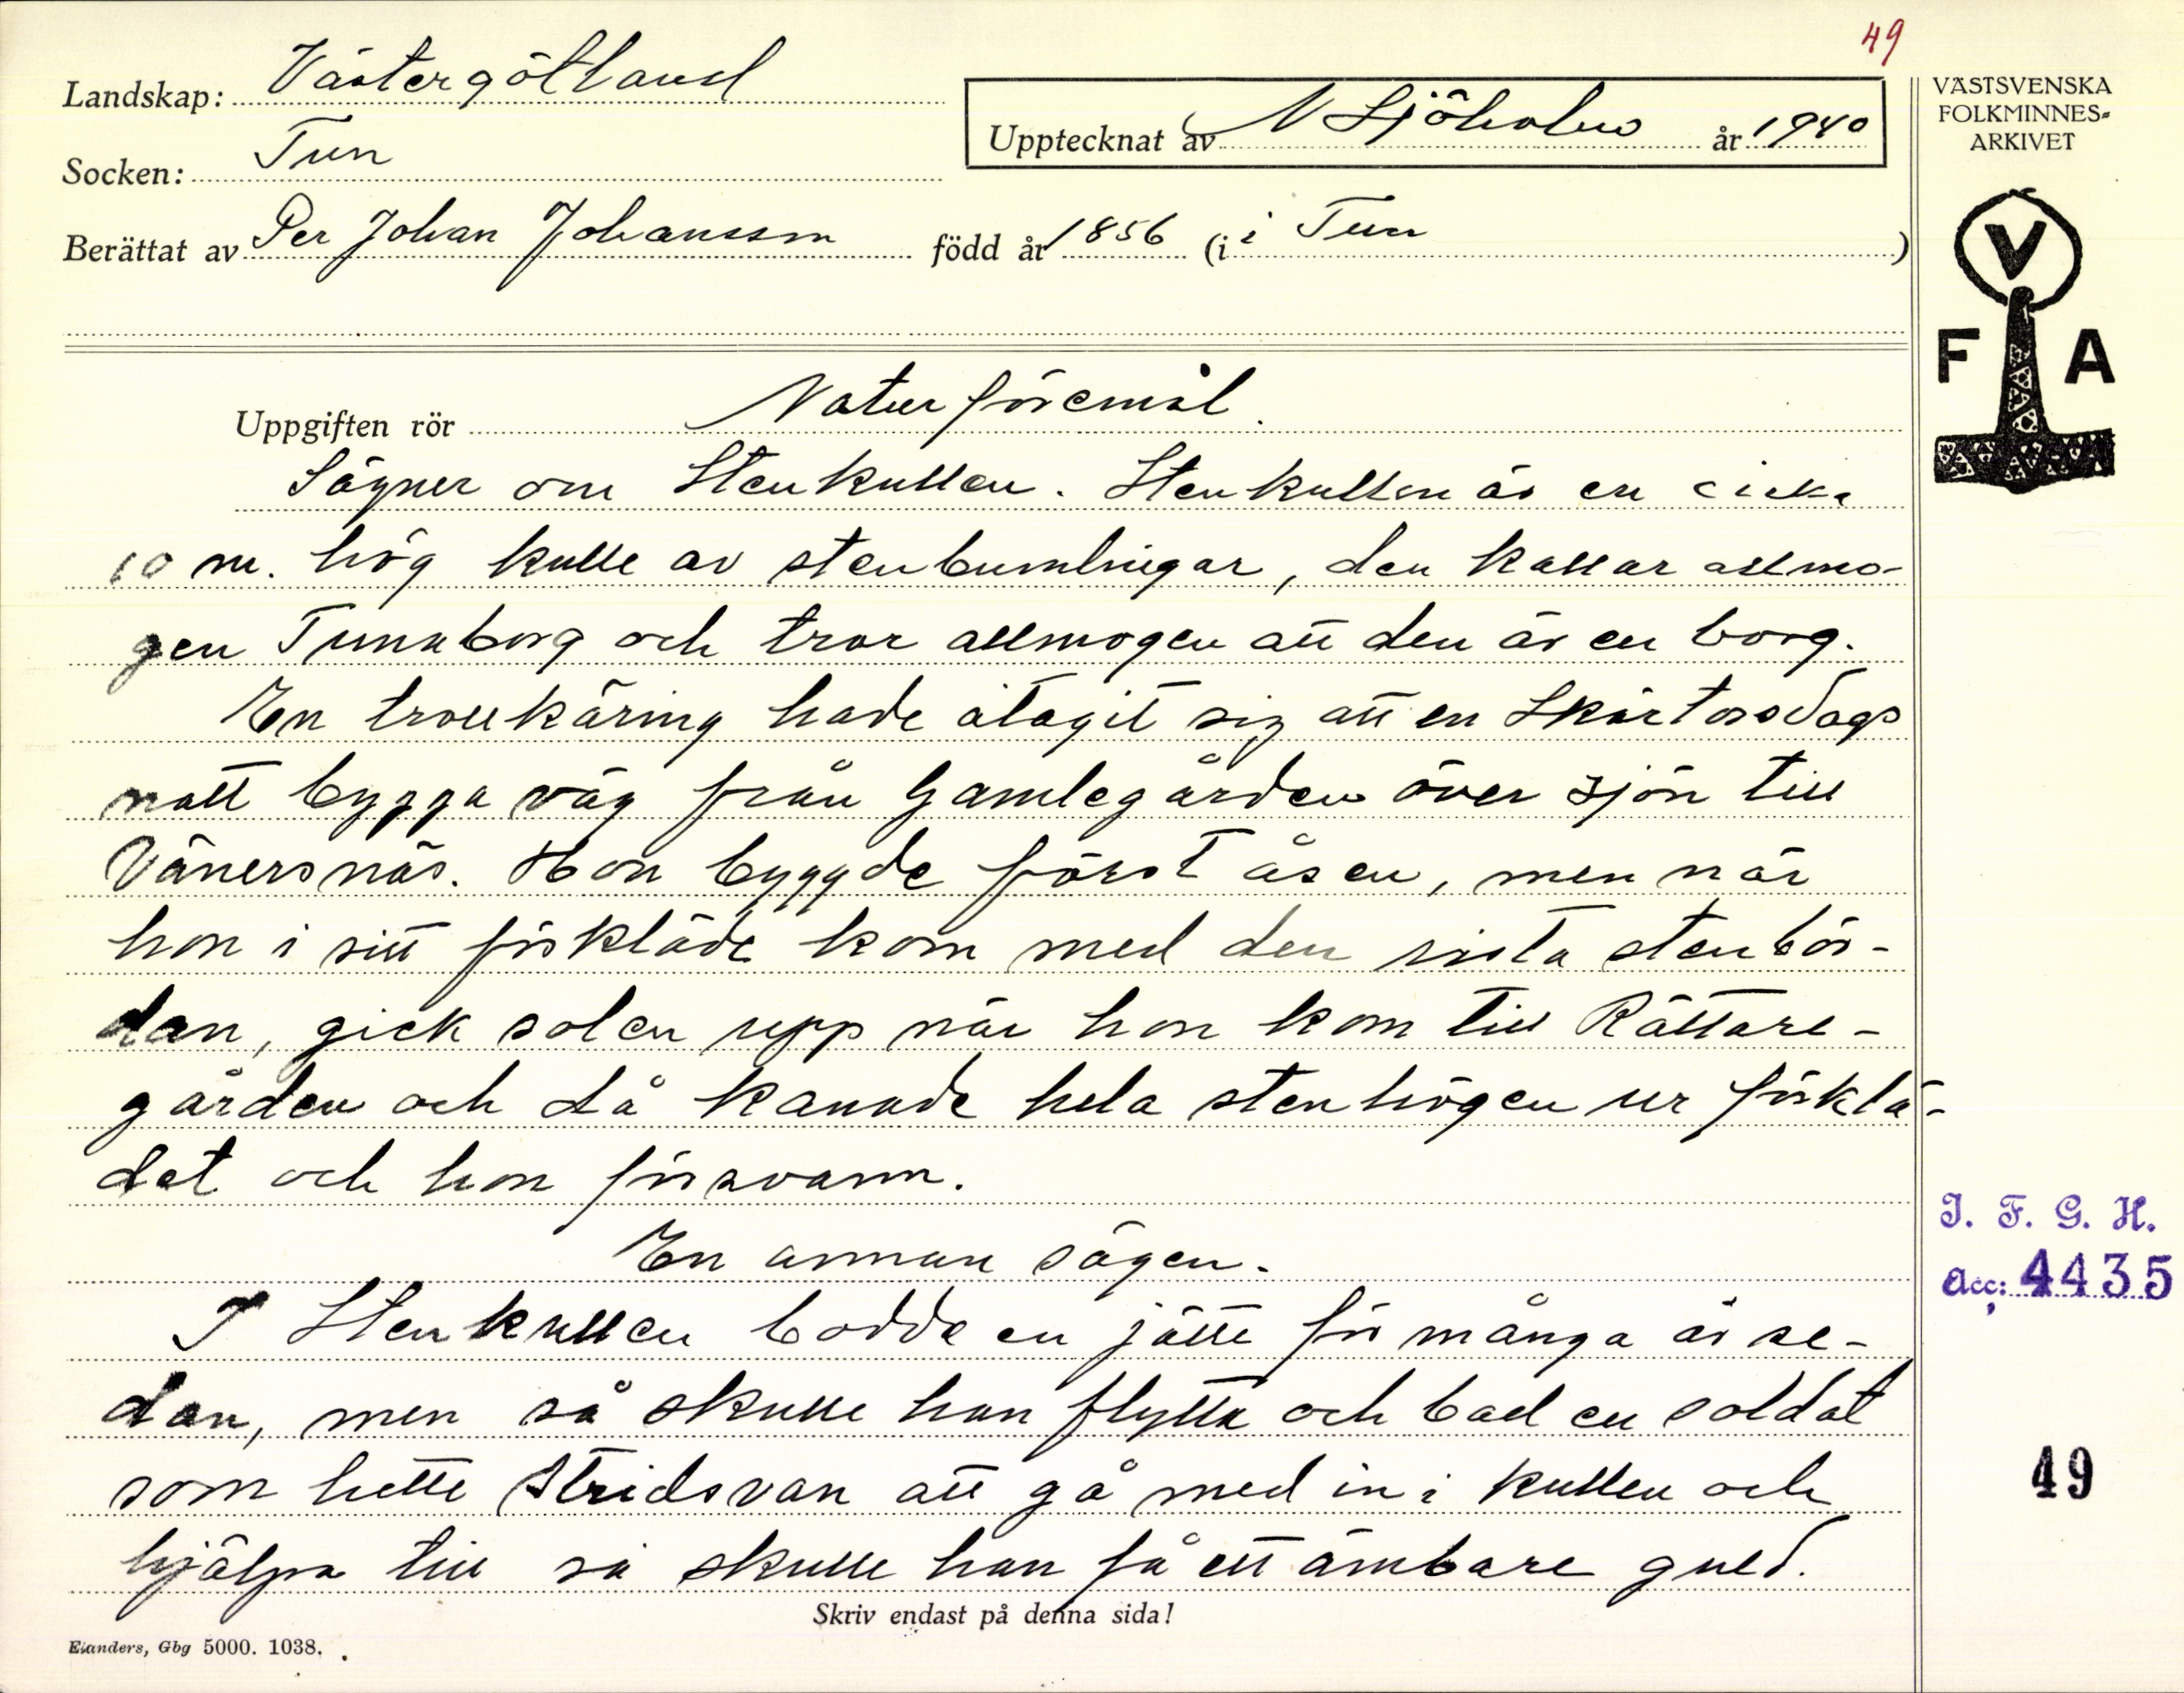 49
Landskap: Västergötland
Socken: Tun
Upptecknat av N Sjöholm år 1940
Berättat av Per Johan Johansson född år 1856 (i i Tun )
VÄSTSVENSKA
FOLKMINNES-
ARKIVET
V
F A
Uppgiften rör Naturföremål.
Sägner om Stenkullen. Stenkullen är en cirka
10 m. hög kulle av stenbumlingar, den kallar allmo-
gen Tunnborg och tror allmogen att den är en borg.
En trollkäring hade åtagit sig att en Skärtorsdags
natt bygga väg från Gamlegården över sjön till
Vänersnäs. Hon byggde först åsen, men när
hon i sitt förkläde kom med den sista stenbör-
dan, gick solen upp när hon kom till Rättare-
gården och då kanade hela stenhögen ur förklä-
det och hon försvann.
En annan sägen.
I Stenkullen bodde en jätte för många år se-
dan, men så skulle han flytta och bad en soldat
som hette Stridsvan att gå med in i kullen och
hjälpa till så skulle han få ett ämbare guld.
Skriv endast på denna sida!
Elanders, Gbg 5000. 1038.
I. F. G. H.
Acc: 4435
49